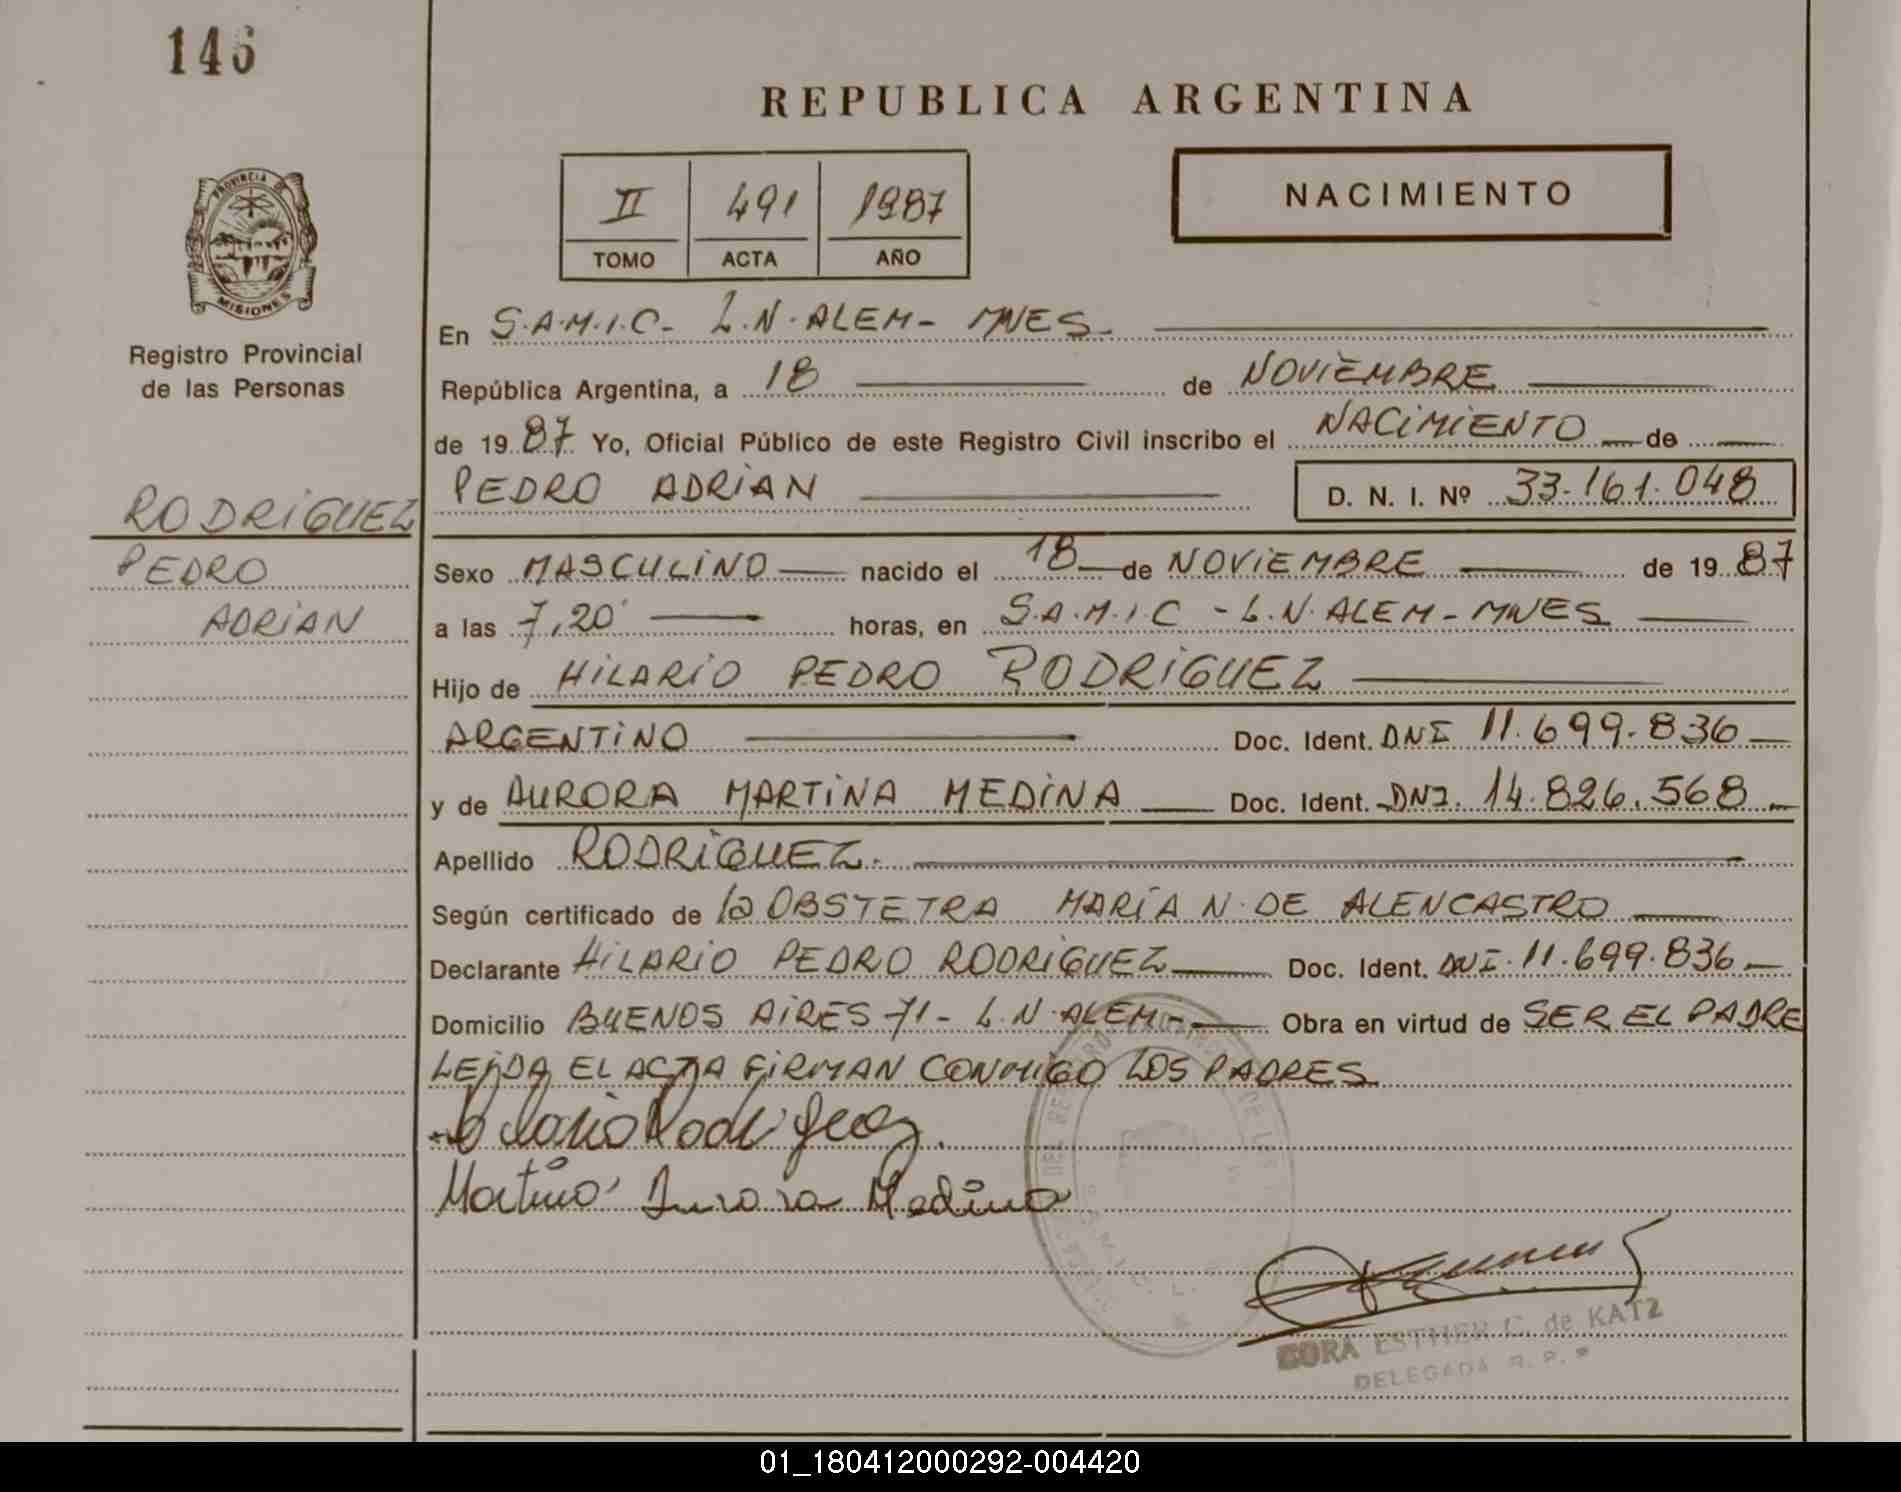 146
REPUBLICA ARGENTINA
II 491 1987
TOMO ACTA AÑO
NACIMIENTO
PROVINCIA DE
MISIONES
Registro Provincial
de las Personas
RODRIGUEZ
PEDRO
ADRIAN
En S.A.M.I.C- L.N. ALEM- MNES.
República Argentina, a 18 de NOVIEMBRE
de 1987 Yo, Oficial Público de este Registro Civil inscribo el NACIMIENTO de
PEDRO ADRIAN D. N. I. Nº 33.161.048
Sexo MASCULINO nacido el 18 de NOVIEMBRE de 1987
a las 7,20 horas, en S.A.M.I.C - L.N. ALEM - MNES
Hijo de HILARIO PEDRO RODRIGUEZ
ARGENTINO Doc. Ident. DNI 11.699.836
y de AURORA MARTINA MEDINA Doc. Ident. DNI. 14.826.568
Apellido RODRIGUEZ.
Según certificado de la OBSTETRA MARÍA N. DE ALENCASTRO
Declarante HILARIO PEDRO RODRIGUEZ Doc. Ident. DNI. 11.699.836
Domicilio BUENOS AIRES 71 - L.N. ALEM- Obra en virtud de SER EL PADRE
LEIDA EL ACTA FIRMAN CONMIGO LOS PADRES
Rodriguez
Martina Aurora Medina
ESTHER C. de KATZ
DELEGADA R. P. P
01_180412000292-004420